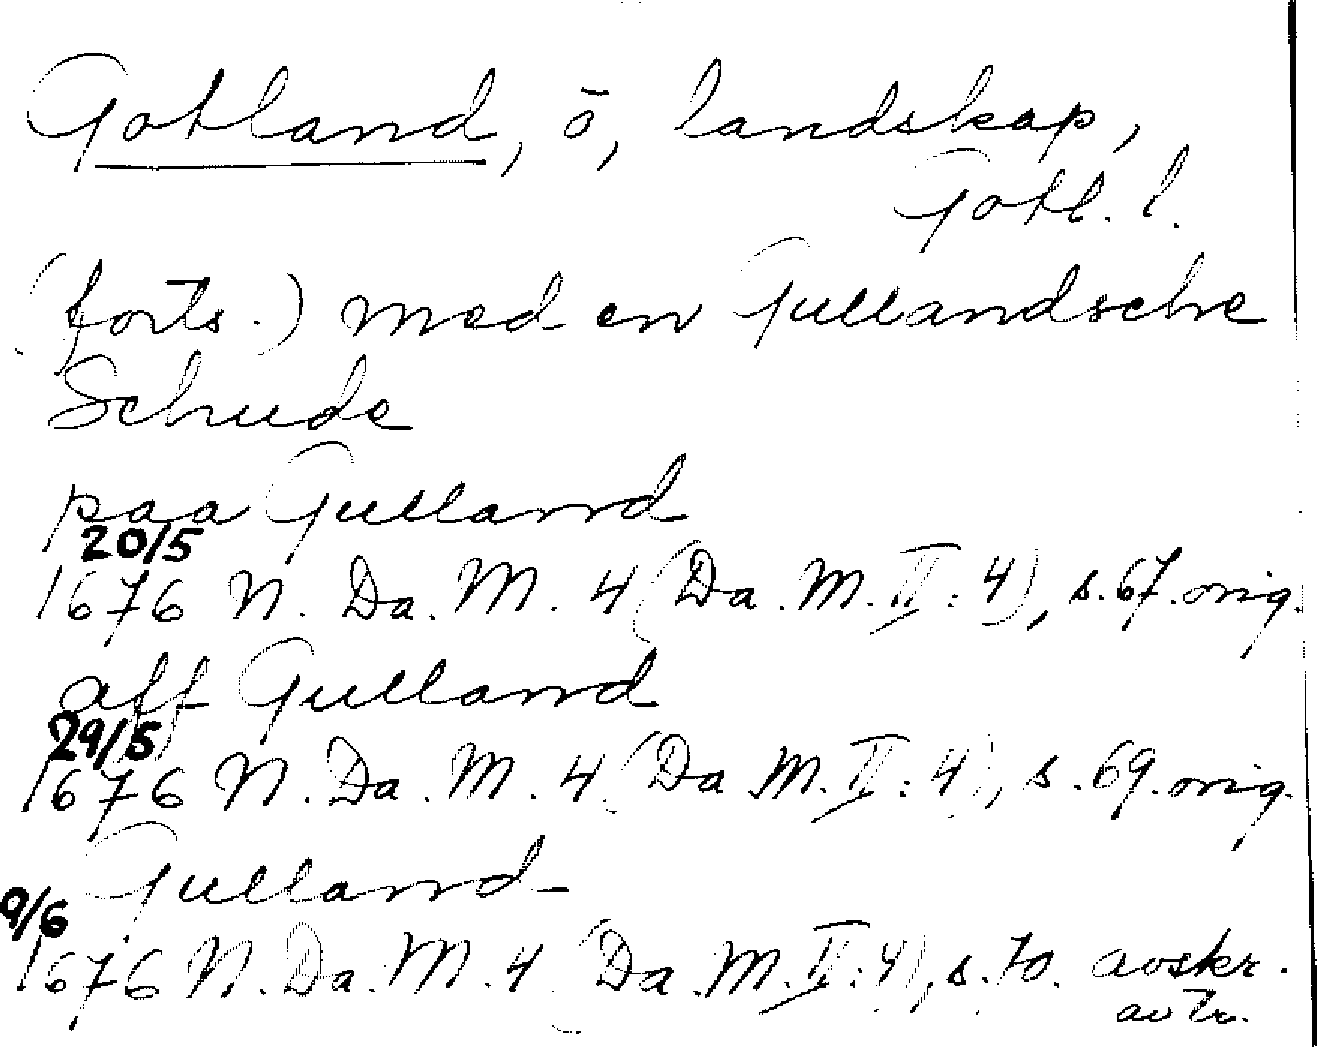 Gotland, ö, landskap,
Gotl. l.
(forts.) med en Gullandsche
Schude
paa Gulland
20/5
1676 N. Da. M. 4 (Da. M. II: 4), s. 67. orig.
aff Gulland
29/5
1676 N. Da. M. 4 (Da. M. II: 4), s. 69. orig.
Gulland
9/6
1676 N. Da. M. 4 (Da. M. II: 4), s. 70. avskr.
av Tr.